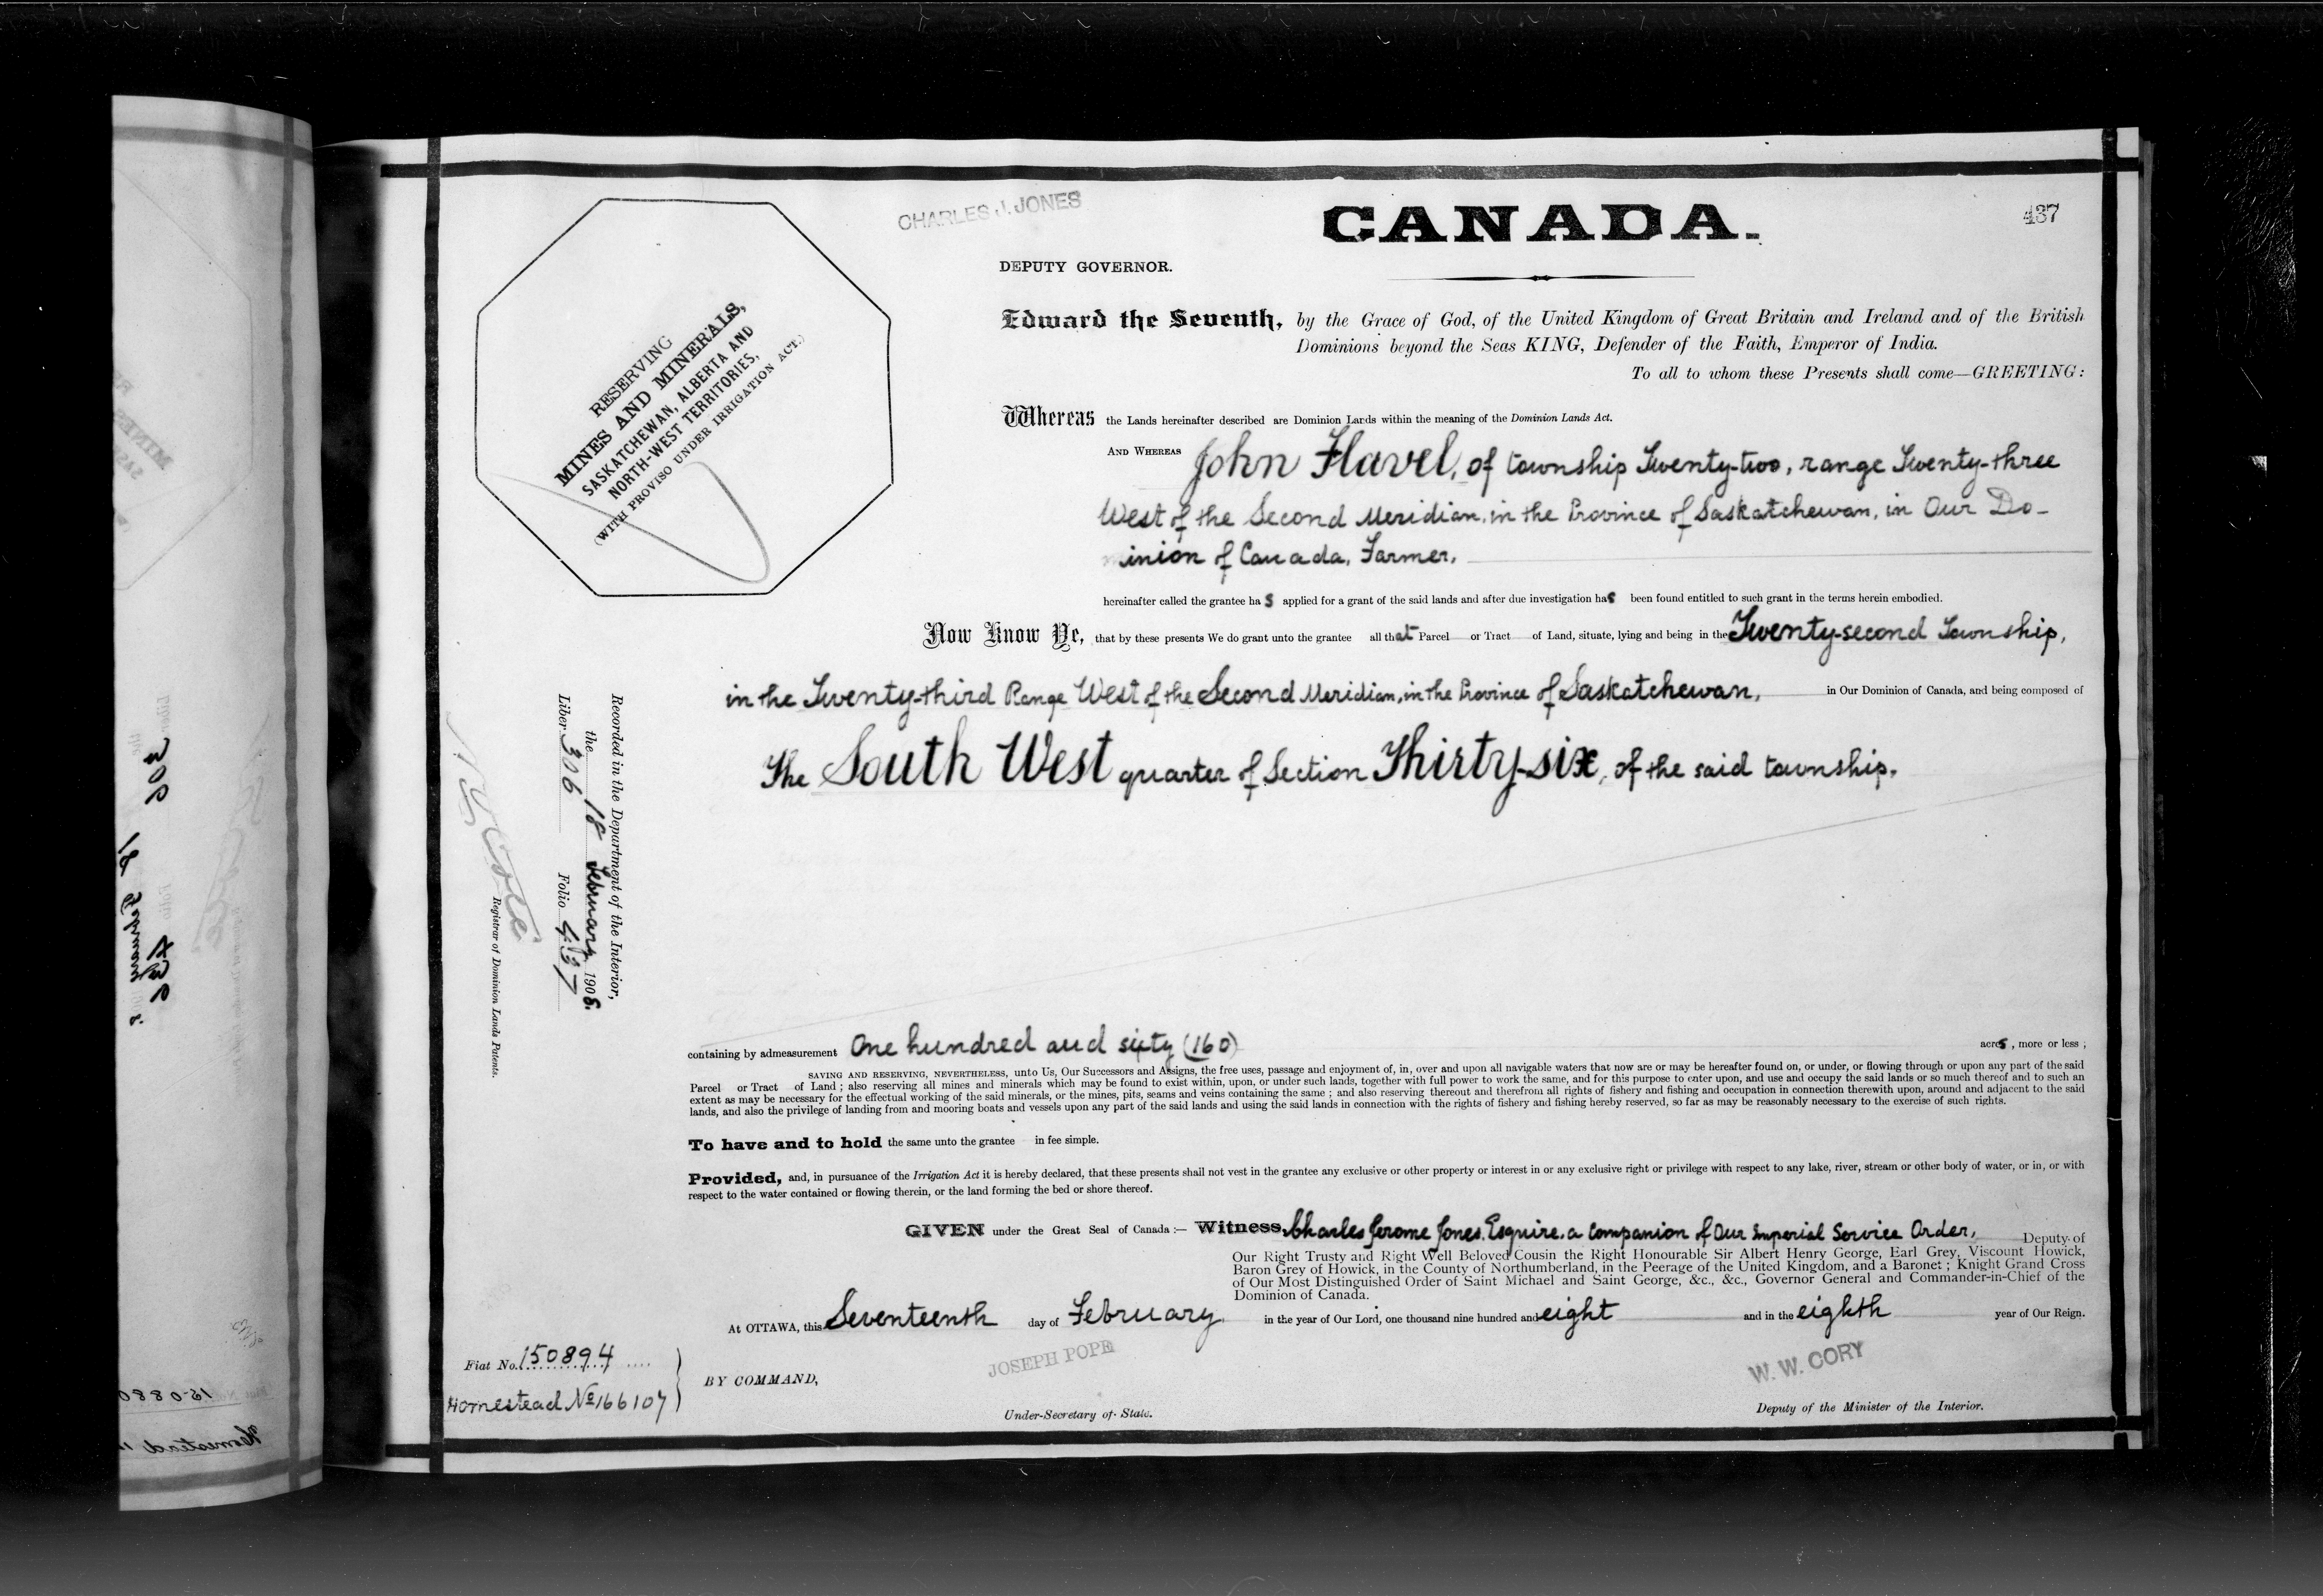 CHARLES J. JONES
CANADA.
437
DEPUTY GOVERNOR.
RESERVING
MINES AND MINERALS,
SASKATCHEWAN, ALBERTA AND
NORTH-WEST TERRITORIES,
(WITH PROVISO UNDER IRRIGATION ACT.)
Edward the Seventh, by the Grace of God, of the United Kingdom of Great Britain and Ireland and of the British
Dominions beyond the Seas KING, Defender of the Faith, Emperor of India.
To all to whom these Presents shall come—GREETING:
Whereas the Lands hereinafter described are Dominion Lands within the meaning of the Dominion Lands Act.
AND WHEREAS John Flavel, of township Twenty-two, range Twenty-three
West of the Second Meridian, in the Province of Saskatchewan, in Our Do-
minion of Canada, Farmer,
hereinafter called the grantee has applied for a grant of the said lands and after due investigation has been found entitled to such grant in the terms herein embodied.
Now Know Ye, that by these presents We do grant unto the grantee all that Parcel or Tract of Land, situate, lying and being in the Twenty-second Township,
in the Twenty-third Range West of the Second Meridian, in the Province of Saskatchewan, in Our Dominion of Canada, and being composed of
The South West quarter of Section Thirty-six, of the said township.
Recorded in the Department of the Interior,
the 18 February 1908.
Liber 306 Folio 437
Registrar of Dominion Lands Patents.
containing by admeasurement One hundred and sixty (160) acres, more or less;
SAVING AND RESERVING, NEVERTHELESS, unto Us, Our Successors and Assigns, the free uses, passage and enjoyment of, in, over and upon all navigable waters that now are or may be hereafter found on, or under, or flowing through or upon any part of the said
Parcel or Tract of Land; also reserving all mines and minerals which may be found to exist within, upon, or under such lands, together with full power to work the same, and for this purpose to enter upon, and use and occupy the said lands or so much thereof and to such an
extent as may be necessary for the effectual working of the said minerals, or the mines, pits, seams and veins containing the same; and also reserving thereout and therefrom all rights of fishery and fishing and occupation in connection therewith upon, around and adjacent to the said
lands, and also the privilege of landing from and mooring boats and vessels upon any part of the said lands and using the said lands in connection with the rights of fishery and fishing hereby reserved, so far as may be reasonably necessary to the exercise of such rights.
To have and to hold the same unto the grantee in fee simple.
Provided, and, in pursuance of the Irrigation Act it is hereby declared, that these presents shall not vest in the grantee any exclusive or other property or interest in or any exclusive right or privilege with respect to any lake, river, stream or other body of water, or in, or with
respect to the water contained or flowing therein, or the land forming the bed or shore thereof.
GIVEN under the Great Seal of Canada:— Witness, Charles Jerome Jones, Esquire, a Companion of Our Imperial Service Order, Deputy of
Our Right Trusty and Right Well Beloved Cousin the Right Honourable Sir Albert Henry George, Earl Grey, Viscount Howick,
Baron Grey of Howick, in the County of Northumberland, in the Peerage of the United Kingdom, and a Baronet; Knight Grand Cross
of Our Most Distinguished Order of Saint Michael and Saint George, &c., &c., Governor General and Commander-in-Chief of the
Dominion of Canada.
At OTTAWA, this Seventeenth day of February in the year of Our Lord, one thousand nine hundred and eight and in the eighth year of Our Reign.
Fiat No. 150894
Homestead No 166107
BY COMMAND,
JOSEPH POPE
Under-Secretary of State.
W. W. CORY
Deputy of the Minister of the Interior.